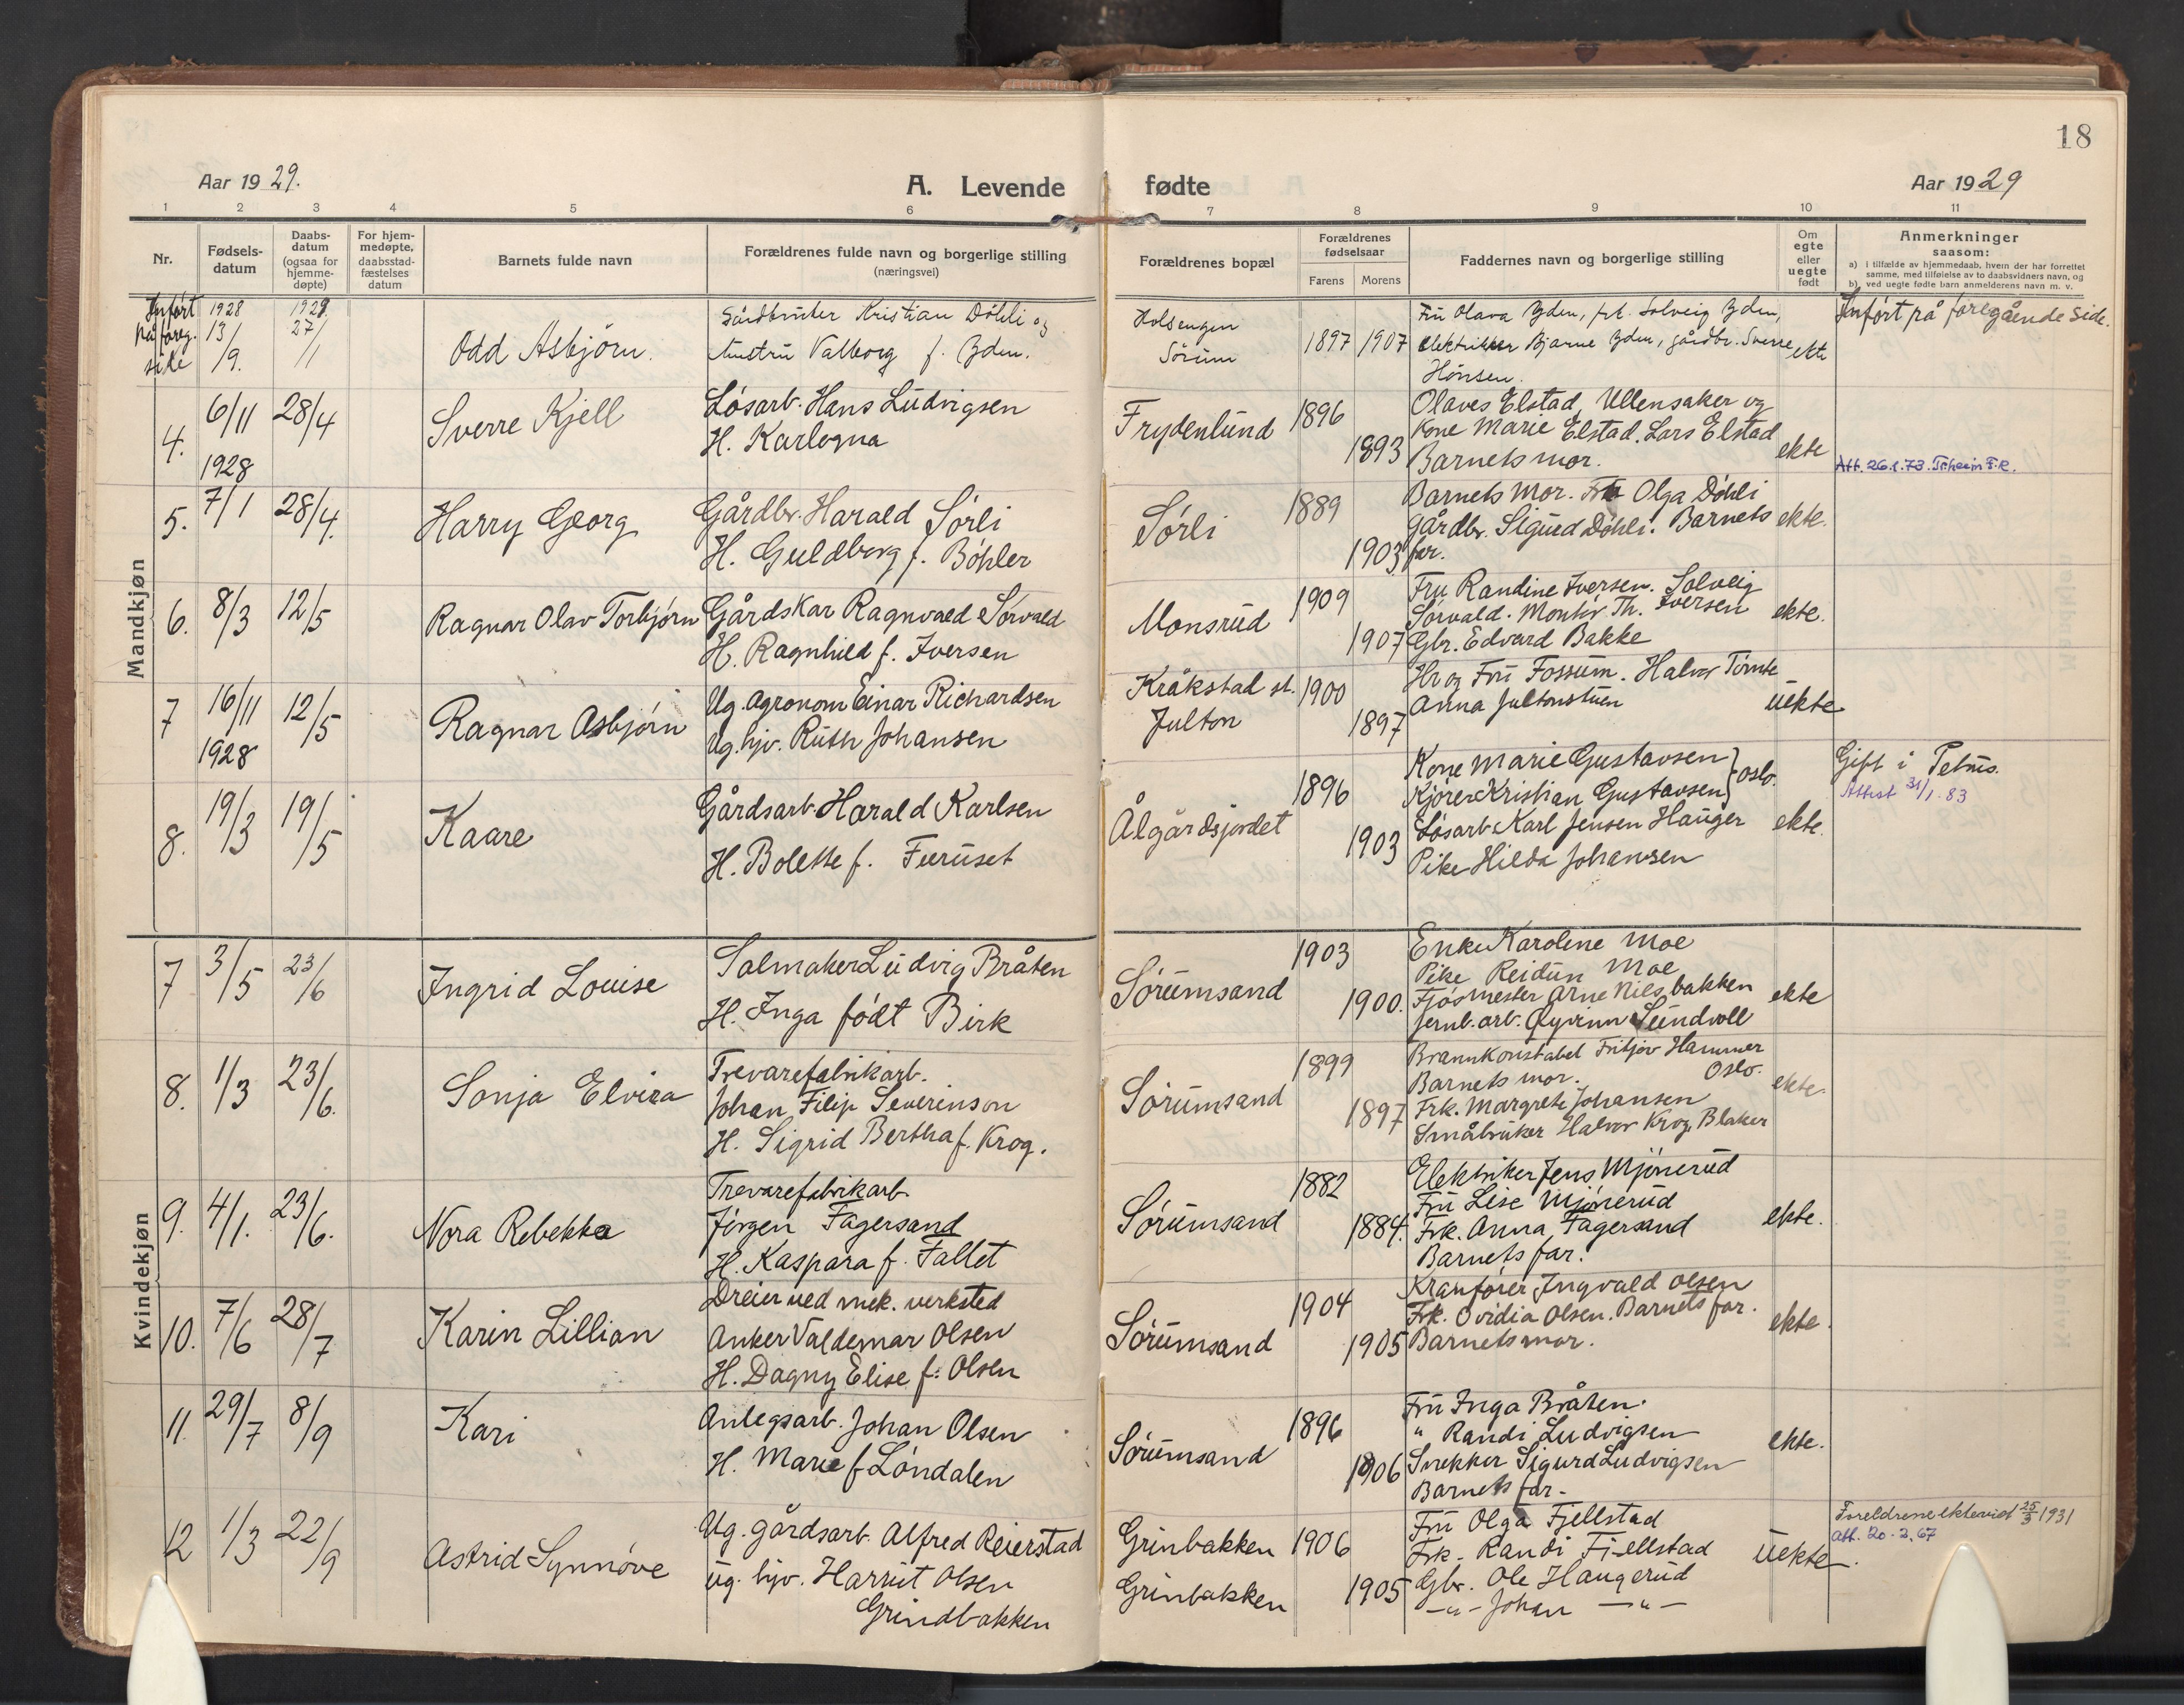 18
Aar 1929.
A. Levende fødte
Aar 1929
1 2 3 4 5 6 7 8 9 10 11
Nr.
Fødsels-
datum
Daabs-
datum
(ogsaa for
hjemme-
døpte)
For hjem-
medøpte,
daabsstad-
fæstelses
datum
Barnets fulde navn
Forældrenes fulde navn og borgerlige stilling
(næringsvei)
Forældrenes bopæl
Forældrenes
fødselsaar
Farens Morens
Faddernes navn og borgerlige stilling
Om
egte
eller
uegte
født
Anmerkninger
saasom:
a) i tilfælde av hjemmedaab, hvem der har forrettet
samme, med tilføielse av to daabsvidners navn, og
b) ved uegte fødte barn anmelderens navn m. v.
Mandkjøn
Innført
på foreg.
side
1928
13/9.
1929.
27/1
Odd Asbjørn.
Gårdbruker Kristian Døhli og
hustru Valborg f. Yden.
Holsengen
Sørum
1897 1907
Fru Olava Yden, frk. Solveig Yden,
elektriker Bjarne Yden, gårdbr. Sverre
Hönsen.
ekte
Innført på foregående side.
4.
6/11
1928
28/4
Sverre Kjell
Løsarb. Hans Ludvigsen
H. Karlogna
Frydenlund
1896
1893
Olaves Elstad, Ullensaker og
Kone Marie Elstad. Lars Elstad
Barnets mor.
ekte
Att. 26.1.73. F.R.
5.
7/1
28/4.
Harry Georg
Gårdbr. Harald Sørli
H. Guldborg f. Bøhler
Sørli
1889
1903
Barnets Mor. Olga Døhli
Gårdbr. Sigurd Døhli. Barnets
far.
ekte.
6.
8/3
12/5
Ragnar Olav Torbjørn
Gårdskar Ragnvald Sørvald
H. Ragnhild f. Iversen
Monsrud
1909
1907
Fru Randine Iversen. Solveig
Sørvald. Montør Th. Iversen
Gbr. Edvard Bakke
ekte.
7
16/11
1928
12/5
Ragnar Asbjørn
Ug. Agronom Einar Richardsen
Ug. hjv. Ruth Johansen
Kråkstad st.
Julton
1900
1897
Hr og Fru Fossum. Halvor Tomte
Anna Jultonstuen
uekte
8.
19/3
19/5
Kaare
Gårdsarb. Harald Karlsen
H. Bolette f. Furuset
Ålgårdsjordet
1896
1903
Kone Marie Gustavsen
Kjører Kristian Gustavsen } Oslo.
Løsarb. Karl Jensen Hauger
Pike Hilda Johansen
ekte.
Gift i Petrus.
Attest 31/1-83
Kvindekjøn
7
3/5
23/6
Ingrid Louise
Salmaker Ludvig Bråten
H. Inga født Birk
Sørumsand
1903
1900.
Enke Karoline Moe
Pike Reidun Moe
Fjøsmester Arne Nilsbakken
Jernb. arb. Øyvinn Sundvoll
ekte
8.
1/3
23/6.
Sonja Elvira
Trevarefabrikarb.
Johan Filip Severinson
H. Sigrid Bertha f. Krog.
Sørumsand
1899
1897
Brannkonstabel Fritjov Hammer
Oslo.
Barnets mor.
Frk. Margrete Johansen
Småbruker Halvor Krog, Blaker
ekte.
9.
4/1.
23/6.
Nora Rebekka
Trevarefabrikarb.
Jörgen Fagersand
H. Kaspara f. Fallet
Sørumsand
1882
1884.
Elektriker Jens Mjønerud
Fru Lise Mjønerud
Frk. Anna Fagersand
Barnets far.
ekte.
10.
7/6
28/7
Karin Lillian
Dreier ved mek. verksted
Anker Valdemar Olsen
H. Dagny Elise f. Olsen
Sørumsand
1904
1905
Kranfører Ingvald Olsen
Frk. Ovidia Olsen. Barnets far.
Barnets mor.
ekte.
11.
29/7
8/9
Kari
Anlegsarb. Johan Olsen
H. Marie f. Løndalen
Sørumsand
1896
1906
Fru Inga Bråten.
" Randi Ludvigsen
Snekker Sigurd Ludvigsen
Barnets far.
ekte.
12
1/3
22/9
Astrid Synnøve
Ug. gårdsarb. Alfred Reierstad
ug. hjv. Harriet Olsen
Grindbakken
Grinbakken
Grinbakken
1906
1905
Fru Olga Fjellstad
Frk. Randi Fjellstad
Gbr. Ole Haugerud
-"- Johan -"-
Uekte.
Foreldrene ekteviet 25/3 1931
att. 20.2.67